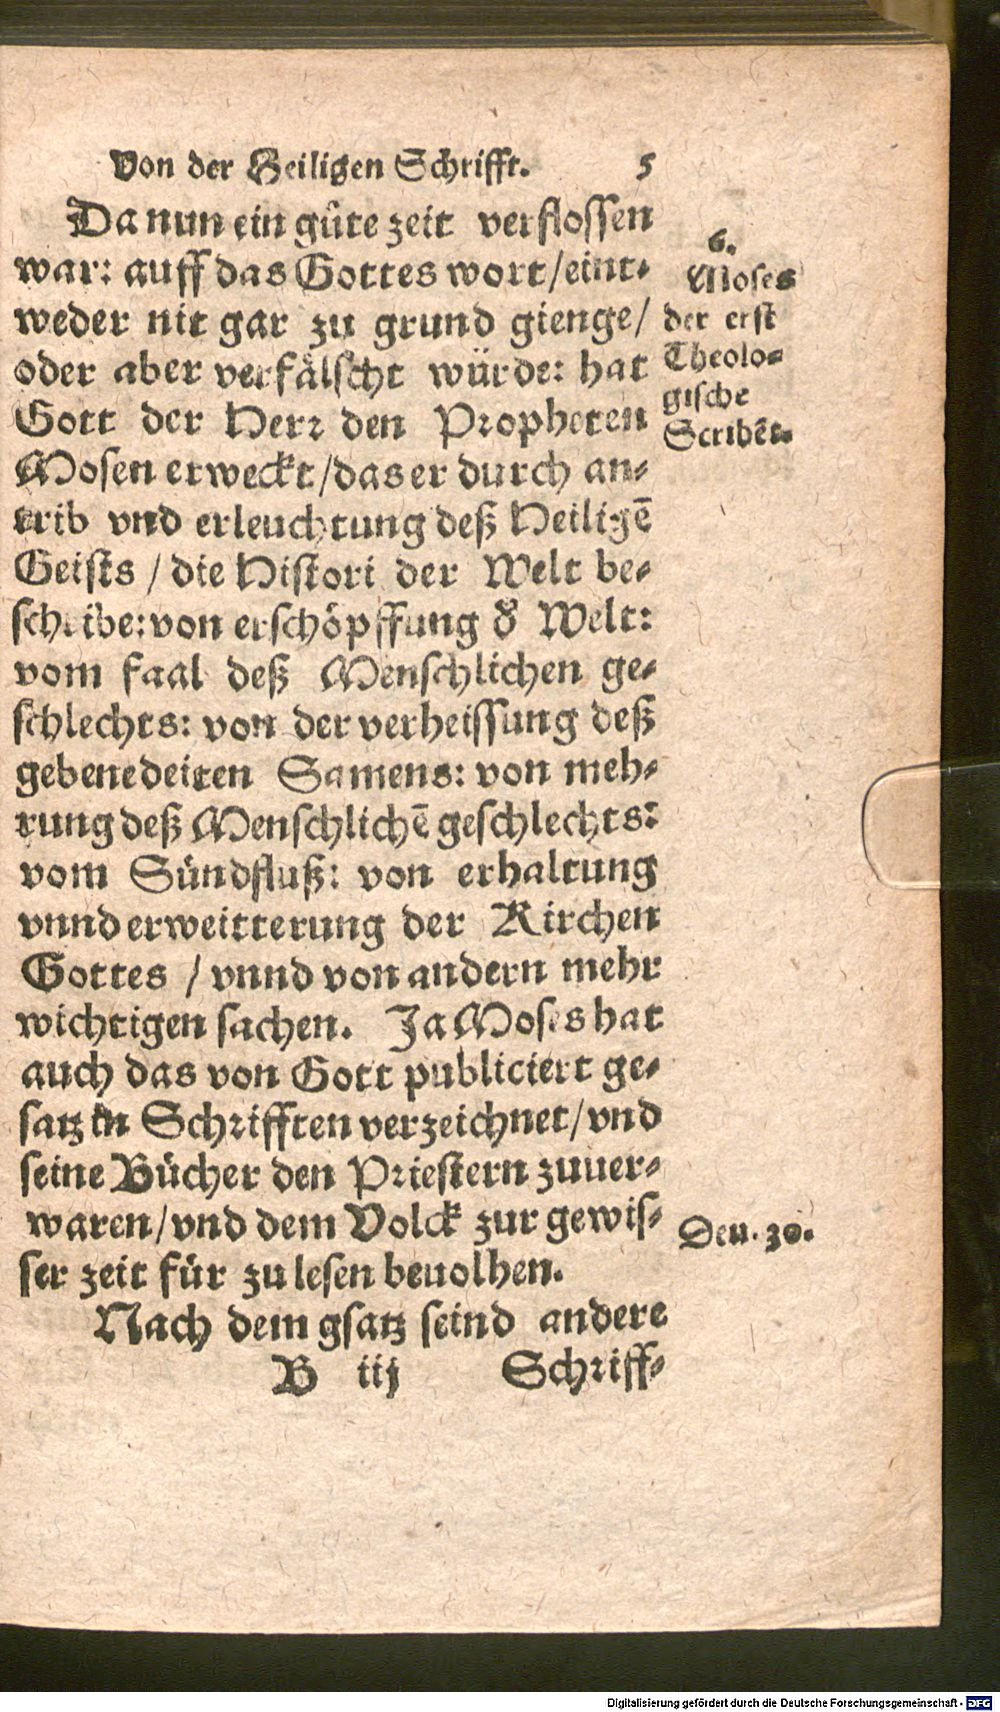 Von der Heiligen Schrifft. 5
Da nun ein gůte zeit verflossen
war: auff das Gottes wort/eint-
weder nit gar zu grund gienge/
oder aber verfälscht würde: hat
Gott der Herr den Propheten
Mosen erweckt/das er durch an-
trib vnd erleuchtung deß Heiligē
Geists / die Histori der Welt be-
schribe: von erschöpffung d' Welt:
vom faal deß Menschlichen ge-
schlechts: von der verheissung deß
gebenedeiten Samens: von meh-
rung deß Menschlichē geschlechts:
vom Sündfluß: von erhaltung
vnnd erweitterung der Kirchen
Gottes / vnnd von andern mehr
wichtigen sachen. Ja Moses hat
auch das von Gott publiciert ge-
satz in Schrifften verzeichnet/vnd
seine Bücher den Priestern zuuer-
waren/vnd dem Volck zur gewis-
ser zeit für zu lesen beuolhen.
Nach dem gsatz seind andere
B iij Schriff-
6.
Moses
der erst
Theolo-
gische
Scribēt.
Deu. 30.
Digitalisierung gefördert durch die Deutsche Forschungsgemeinschaft - DFG